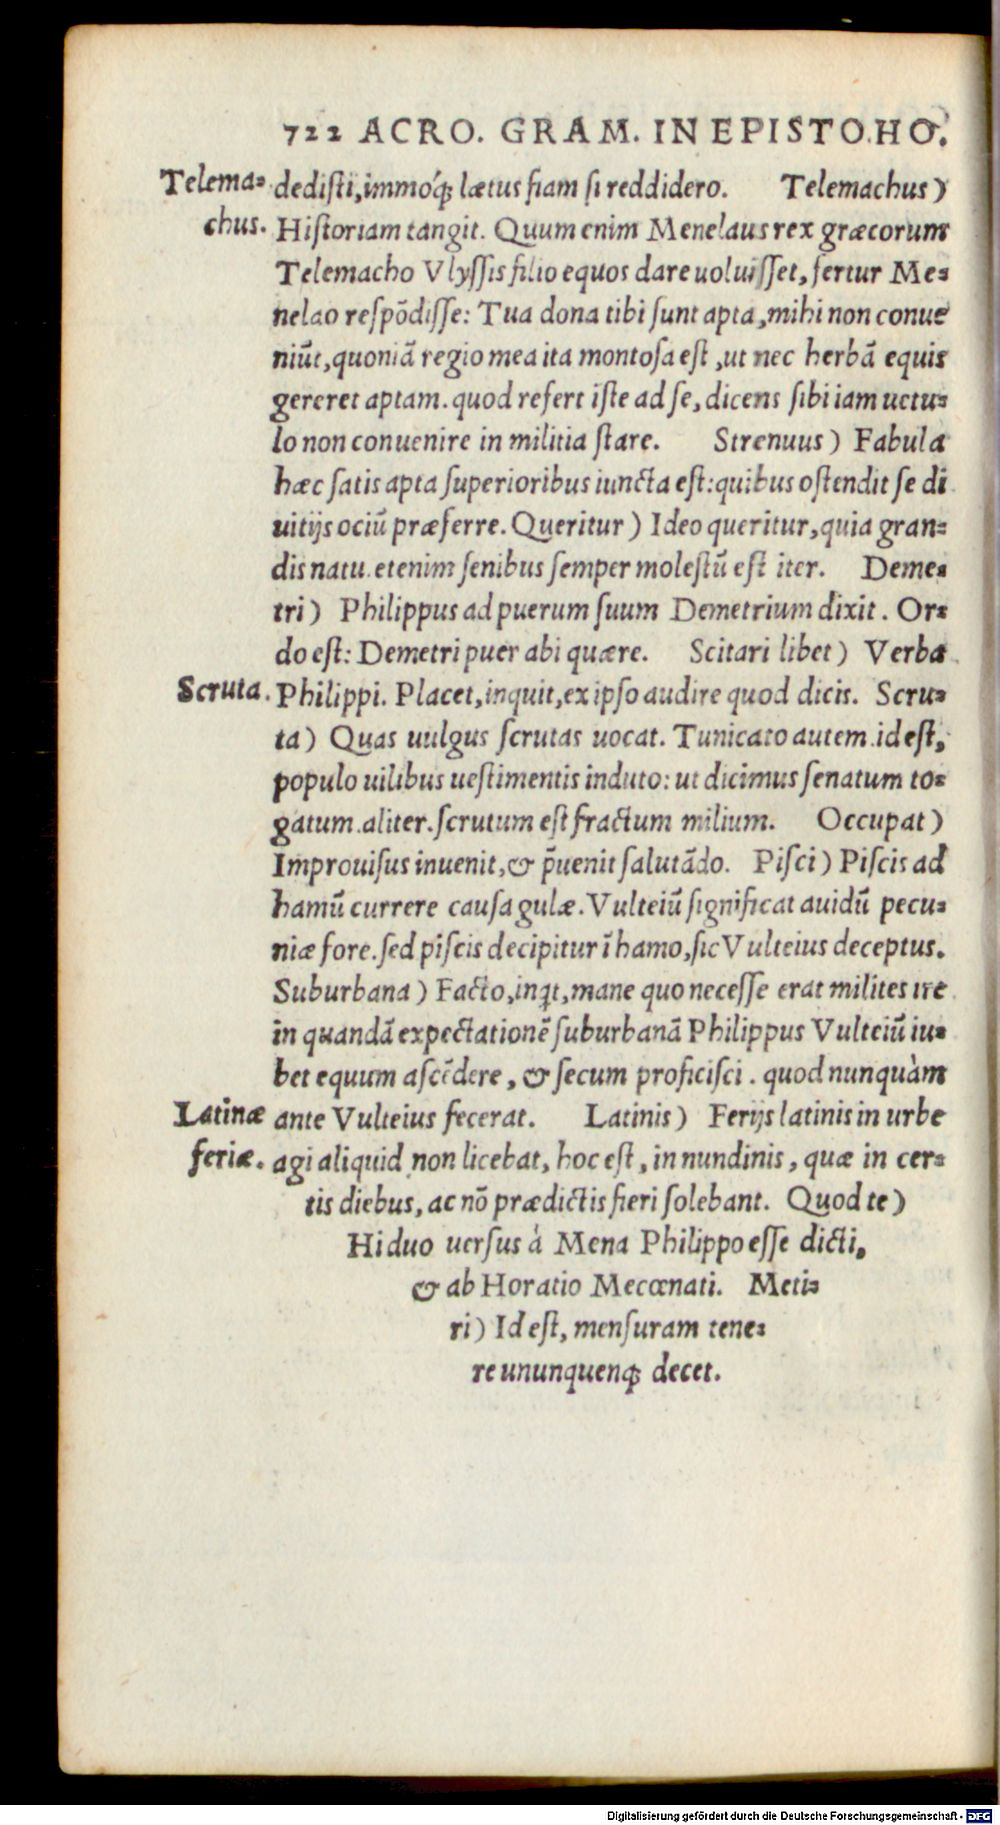 722 ACRO. GRAM. IN EPISTO. HO.
Telema- dediſti, immóq; lætus fiam ſi reddidero. Telemachus)
chus. Hiſtoriam tangit. Quum enim Menelaus rex græcorum
Telemacho Vlyſſis filio equos dare uoluiſſet, fertur Me-
nelao reſpõdiſſe: Tua dona tibi ſunt apta, mihi non conue
niũt, quoniã regio mea ita montoſa eſt, ut nec herbã equis
gereret aptam. quod refert iſte ad ſe, dicens ſibi iam uctu-
lo non conuenire in militia ſtare. Strenuus) Fabula
hæc ſatis apta ſuperioribus iuncta eſt: quibus oſtendit ſe di
uitijs ociũ præferre. Queritur) Ideo queritur, quia gran-
dis natu. etenim ſenibus ſemper moleſtũ eſt iter. Deme-
tri) Philippus ad puerum ſuum Demetrium dixit. Or-
do eſt: Demetri puer abi quære. Scitari libet) Verba
Scruta. Philippi. Placet, inquit, ex ipſo audire quod dicis. Scru-
ta) Quas uulgus ſcrutas uocat. Tunicato autem. id eſt,
populo uilibus ueſtimentis induto: ut dicimus ſenatum to-
gatum. aliter. ſcrutum eſt fractum milium. Occupat)
Improuiſus inuenit, & p̃uenit ſalutãdo. Piſci) Piſcis ad
hamũ currere cauſa gulæ. Vulteiũ ſignificat auidũ pecu-
niæ fore. ſed piſcis decipitur ĩ hamo, ſic Vulteius deceptus.
Suburbana) Facto, inqt, mane quo neceſſe erat milites ire
in quandã expectationẽ ſuburbanã Philippus Vulteiũ iu-
bet equum aſcẽdere, & ſecum proficiſci. quod nunquàm
Latinæ ante Vulteius fecerat. Latinis) Ferijs latinis in urbe
feriæ. agi aliquid non licebat, hoc eſt, in nundinis, quæ in cer-
tis diebus, ac nõ prædictis fieri ſolebant. Quod te)
Hi duo uerſus à Mena Philippo eſſe dicti,
& ab Horatio Mecœnati. Meti-
ri) Id eſt, menſuram tene-
re ununquenq; decet.
Digitalisierung gefördert durch die Deutsche Forschungsgemeinschaft - DFG